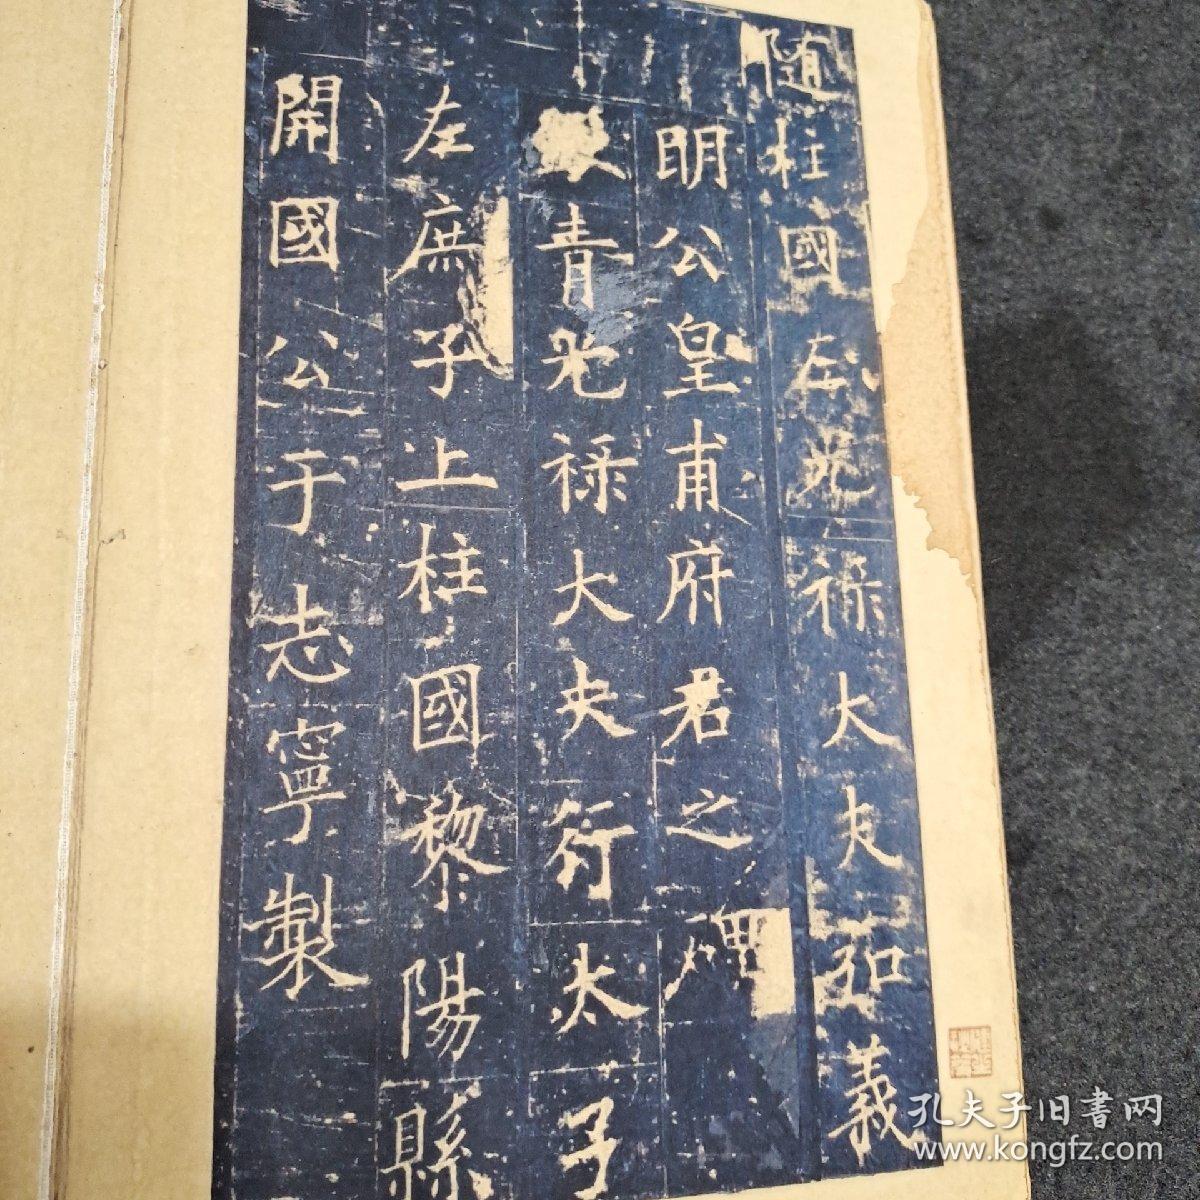 随柱國左光禄大夫弘義
明公皇甫府君之碑
銀青光禄大夫行太子
左庶子上柱國黎陽縣
開國公于志寧製
孔夫子旧書网
www.kongfz.com